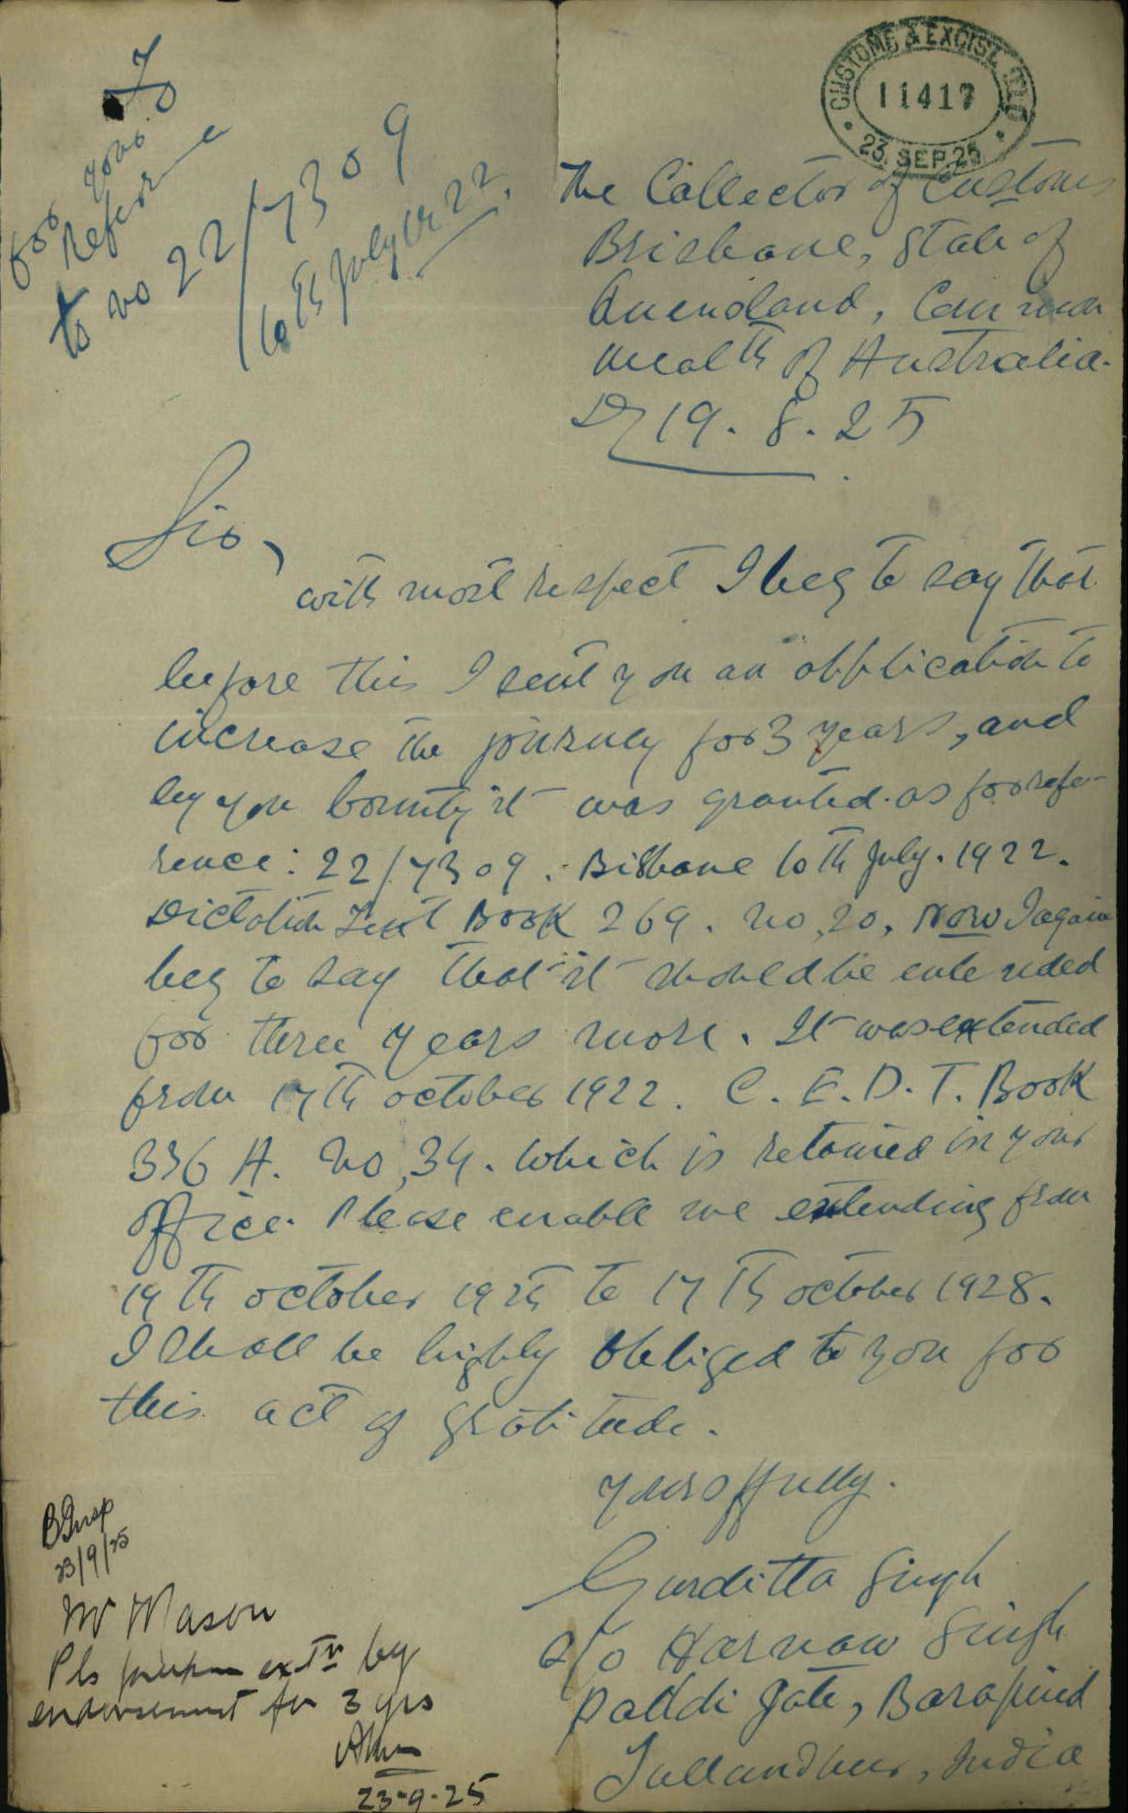 CUSTOMS & EXCISE QLD
11417
23 SEP 25
To
for your
Refern e
to no 22/7309
10 th July 1922.
The Collector of Customs
Brisbane, State of
Queensland, Common
wealth of Australia.
D/ 19. 8. 25
Sir,
with most respect I beg to say that
before this I sent you an application to
increase the journey for 3 years, and
by you bounty it was granted. as for refe-
rence: 22/7309. Brisbane 10 th July. 1922.
Dictation Test Book 269. no, 20, Now I again
beg to say that it should be extended
for three years more. It was extended
from 17 th october 1922. C. E. D. T. Book
336 A. no, 34. which is retained in your
office. Please enable me extending from
17 th october 1925 to 17 Th october 1928.
I shall be highly obliged to you for
this act of gratitude.
yours ffully.
Gurditta Singh
s/o Harnam Singh
Paddi Jate, Barapind
Jullandhur, India
B Insp
23/9/25
Mr Mason
Pls prepare extn by
endorsement for 3 yrs
23-9-25